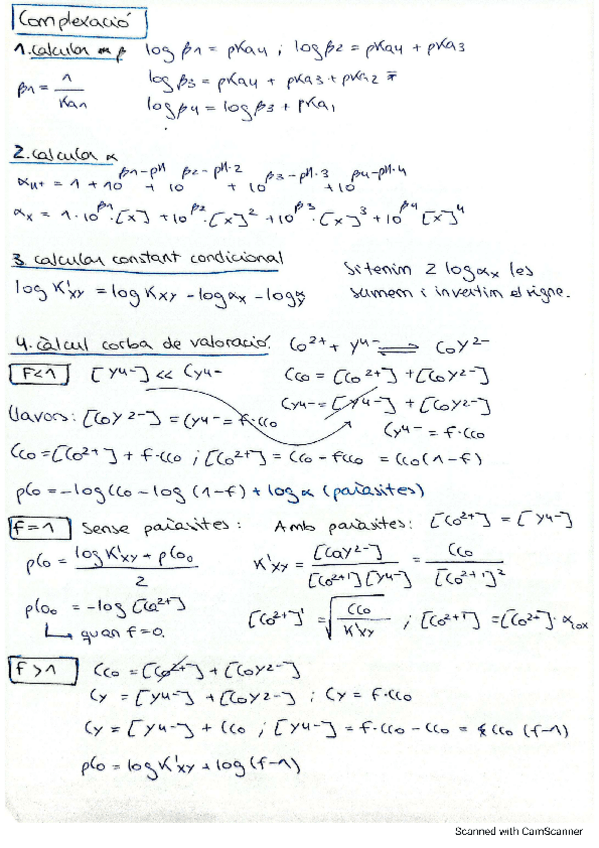 Complexació
1. calcular β log β1 = pKa4 ; log β2 = pKa4 + pKa3
β1 = 1/Kan log β3 = pKa4 + pKa3 + pKa2
log β4 = log β3 + pKa1
2. calcular α
αH+ = 1 + 10^(β1-pH) + 10^(β2-pH·2) + 10^(β3-pH·3) + 10^(β4-pH·4)
αx = 1·10^β1·[x] + 10^β2·[x]² + 10^β3·[x]³ + 10^β4 [x]⁴
3. calcular constant condicional Si tenim 2 log αx les
log K'xy = log Kxy - log αx - log αy sumem i invertim el signe.
4. càlcul corba de valoració. Co²⁺ + Y⁴⁻ ⇌ CoY²⁻
F<1 [Y⁴⁻] << Cy⁴⁻ Cco = [Co²⁺] + [CoY²⁻]
Cy⁴⁻ = [Y⁴⁻] + [CoY²⁻]
Llavors: [CoY²⁻] = Cy⁴⁻ = f·Cco Cy⁴⁻ = f·Cco
Cco = [Co²⁺] + f·Cco ; [Co²⁺] = Cco - fCco = Cco(1-f)
pCo = -log Cco - log (1-f) + log α (paràsites)
f=1 Sense paràsites: Amb paràsites: [Co²⁺] = [Y⁴⁻]
pCo = (log K'xy + pCo₀)/2 K'xy = [CoY²⁻]/([Co²⁺'][Y⁴⁻]) = Cco/[Co²⁺']²
pCo₀ = -log [Co²⁺] [Co²⁺]' = √(Cco/K'xy) ; [Co²⁺'] = [Co²⁺]·α
↳ quan f=0.
f>1 Cco = [Co²⁺] + [CoY²⁻]
Cy = [Y⁴⁻] + [CoY²⁻] ; Cy = f·Cco
Cy = [Y⁴⁻] + Cco ; [Y⁴⁻] = f·Cco - Cco = Cco (f-1)
pCo = log K'xy + log (f-1)
Scanned with CamScanner